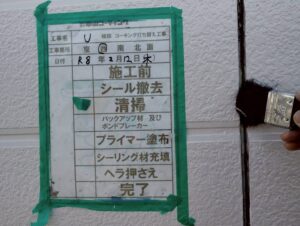 工事名 U 様邸 コーキング打ち替え工事
工事箇所 東 西 南 北 面
日付 R 8 年 2 月 12 日(木)
施工前
シール撤去
清掃
バックアップ材 及び
ボンドブレーカー
プライマー塗布
シーリング材充填
ヘラ押さえ
完了